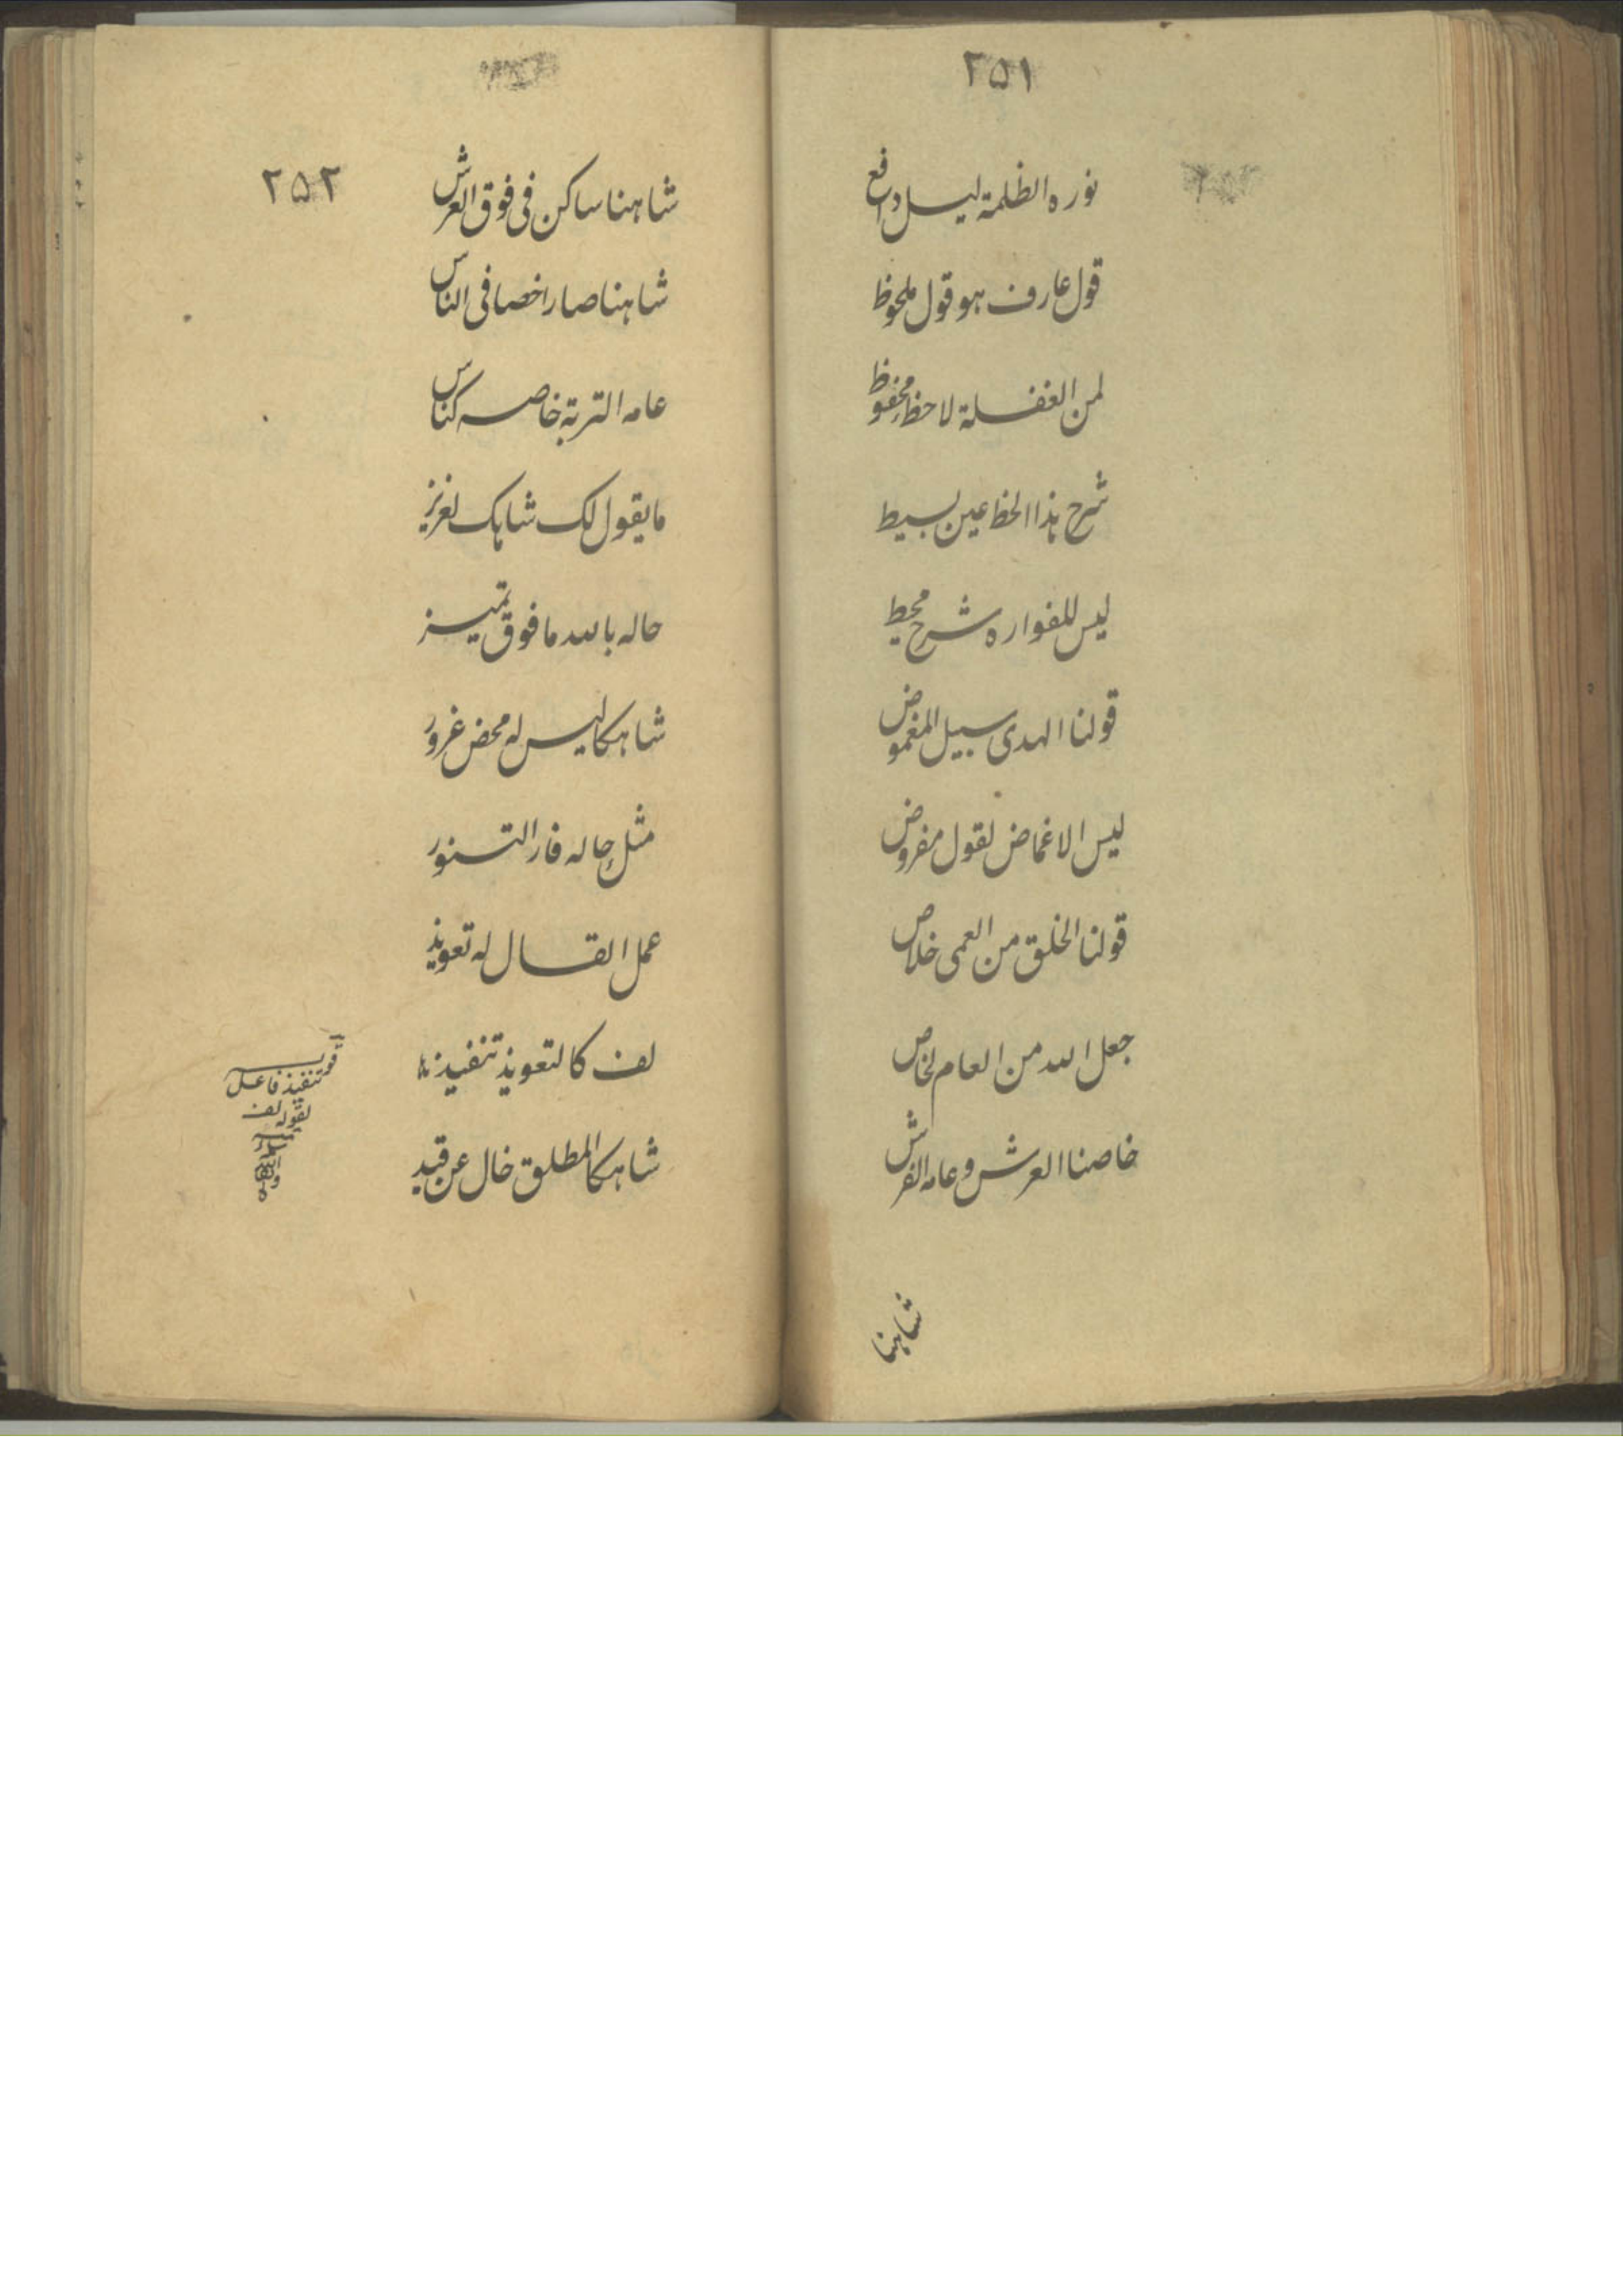 ۲۵۱
نوره الظلمة ليل دافع
قول عارف هو قول ملحوظ
لمن الغفلة لاحظ محفوظ
شرح هذا الحظ عين بسيط
ليس للفواره شرح محيط
قولنا الهدى سبيل المغموض
ليس الاغماض لقول مفروض
قولنا الخلق من العمى خلاص
جعل الله من العام لخاص
خاصنا العرش و عامه الفرش
شاهنا
۲۵۲
شاهنا ساكن فى فوق العرش
شاهنا صار اخصا فى الناس
عامه التربة خاصه كناس
ما يقول لك شاهك لعزيز
حاله بالله ما فوق تميز
شاهكا ليس له محض غرور
مثل حاله فار التنور
عمل القال له تعويذ
لف كالتعويذ تنفيذ
شاهكا المطلق خال عن قيد
قوله تنفيذ فاعل
لقوله لف